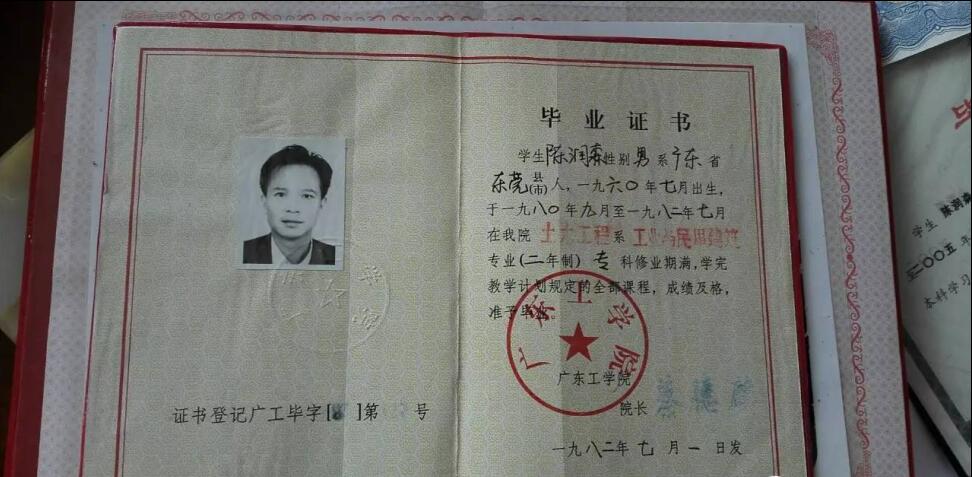 证书登记广工毕字[8 ]第 号
毕业证书
学生陈润森性别男系广东省
东莞县(市)人,一九六〇年七月出生,
于一九八〇年九月至一九八二年七月
在我院土木工程系工业与民用建筑
专业(二年制)专科修业期满,学完
教学计划规定的全部课程,成绩及格,
准予毕业。
广东工学院
广东工学院
院长
一九八二年七月一日发
学生 陈润森
二〇〇五年
本科学习